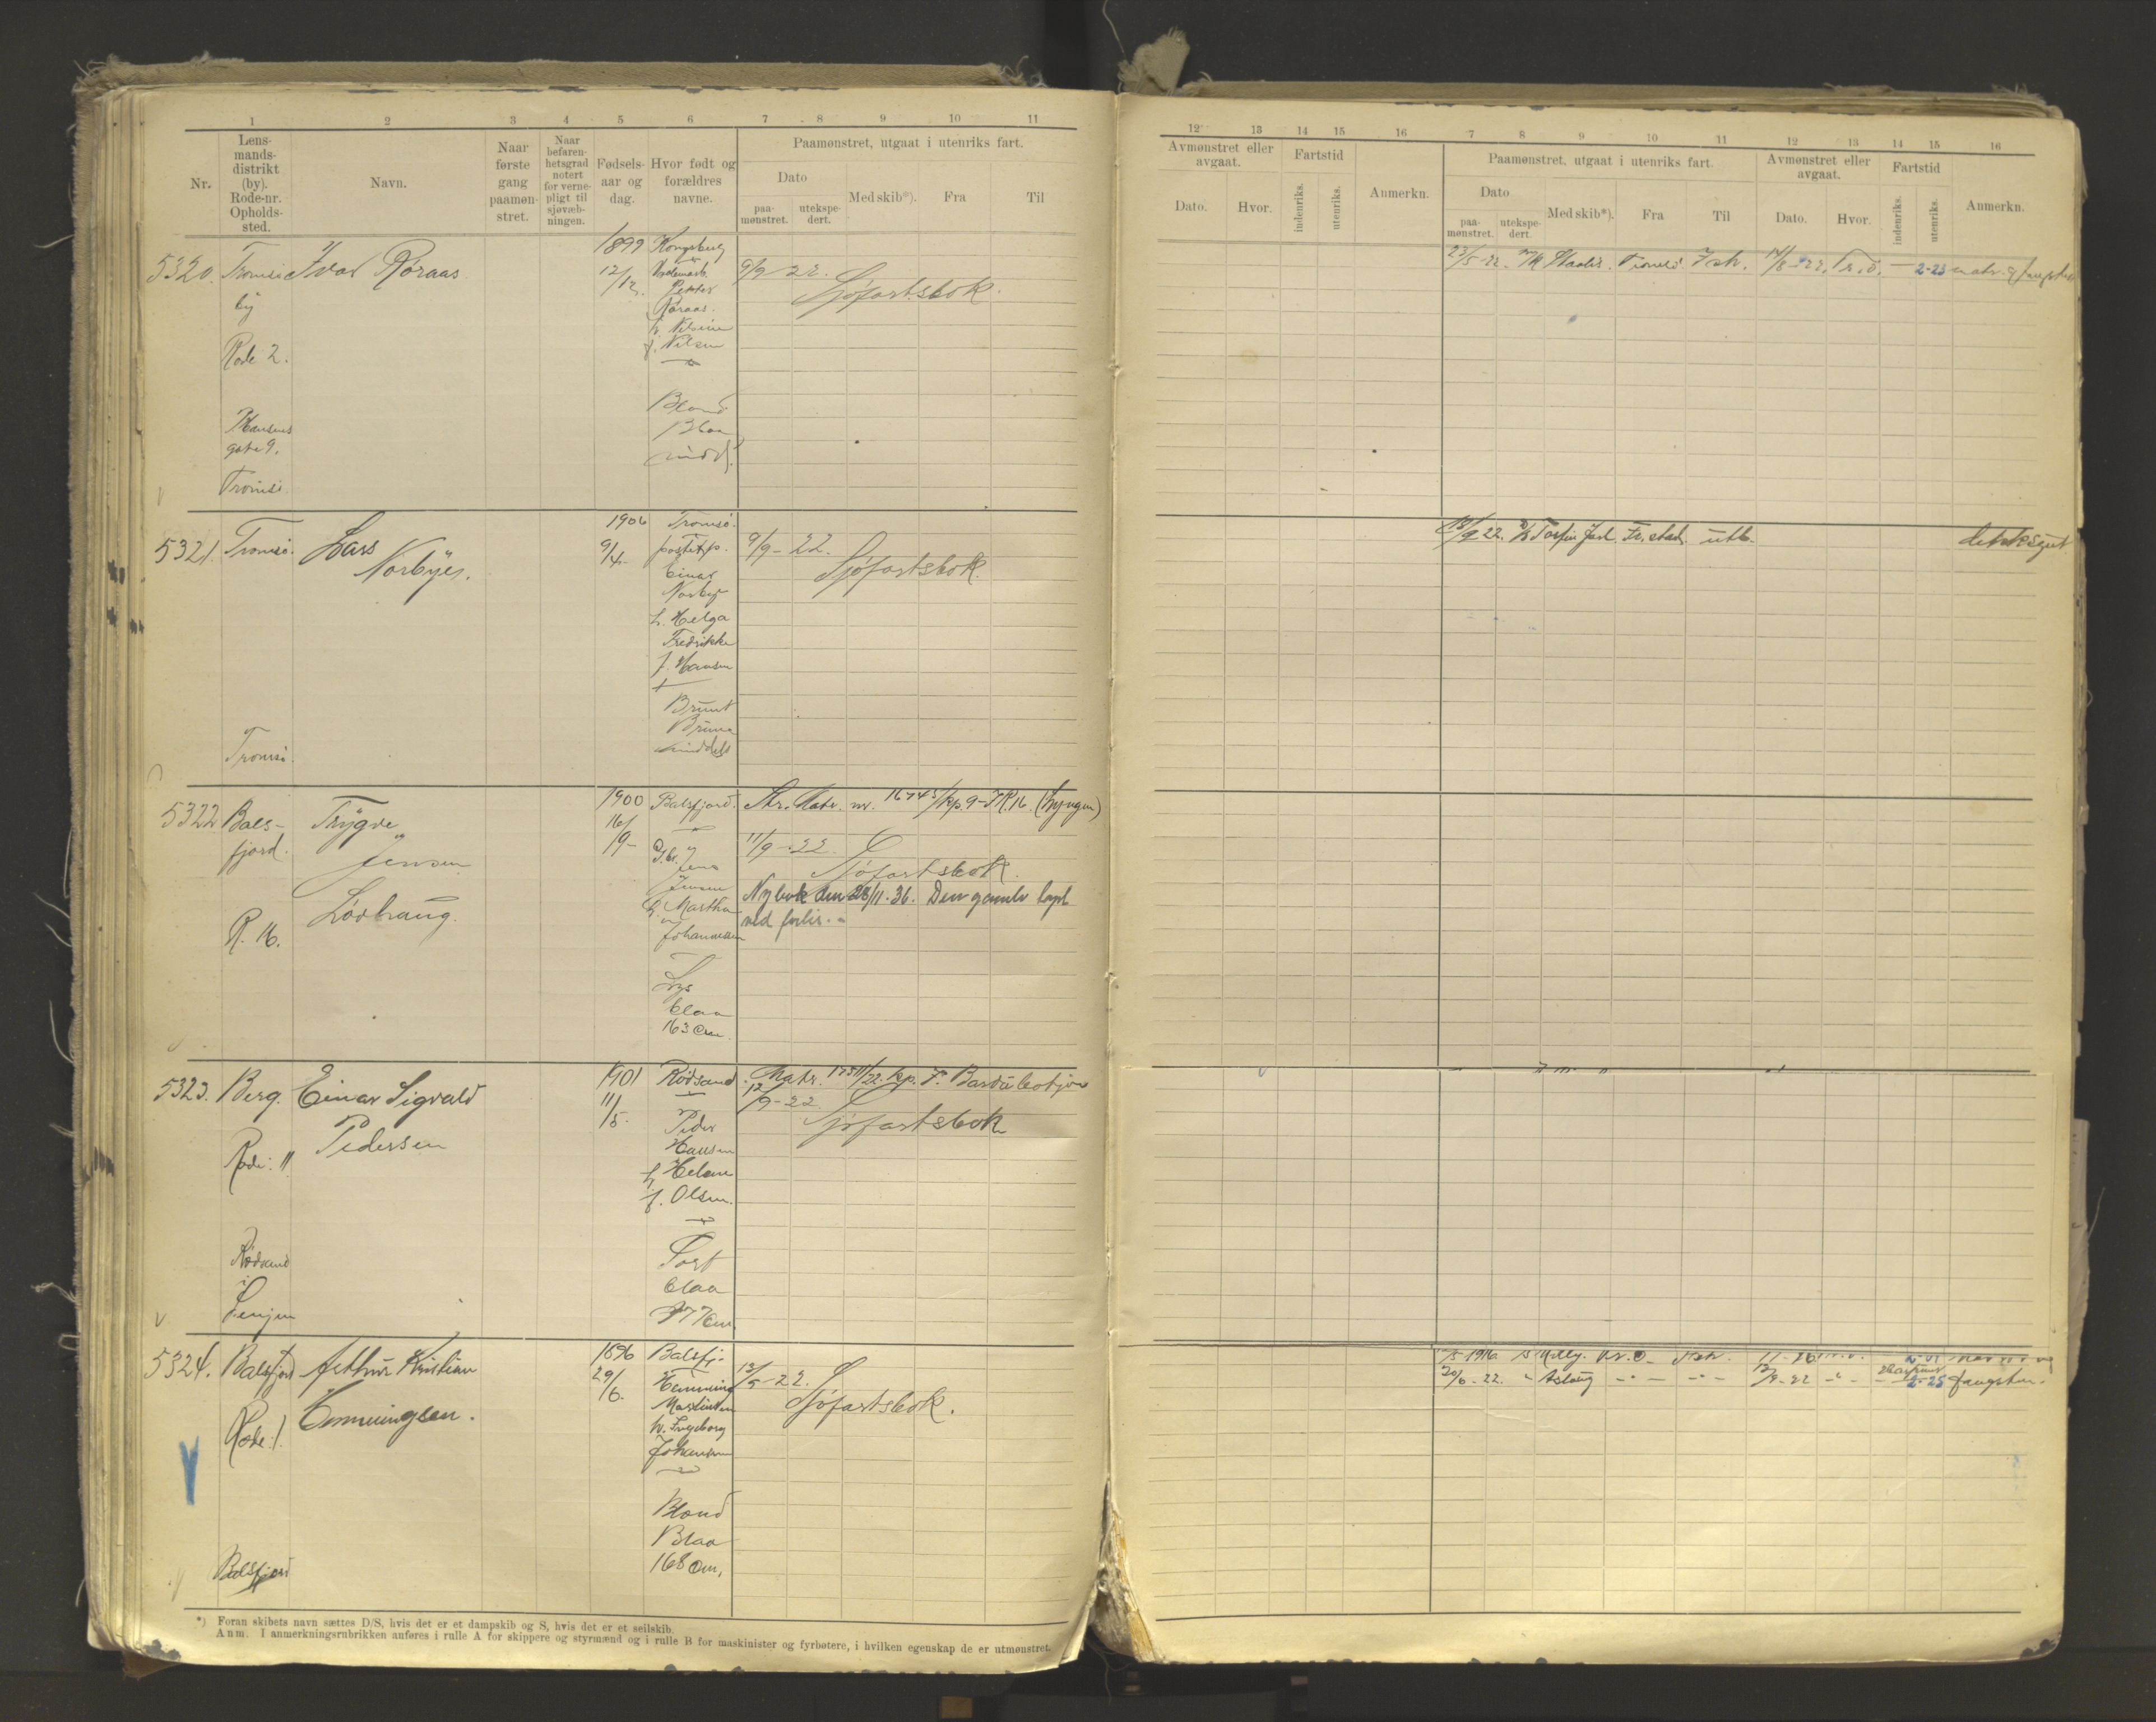 1 2 3 4 5 6 7 8 9 10 11
Nr.
Lens-
mands-
distrikt
(by).
Rode-nr.
Opholds-
sted.
Navn.
Naar
første
gang
paamøn-
stret.
Naar
befaren-
hetsgrad
notert
for verne-
pligt til
sjøvæb-
ningen.
Fødsels-
aar og
dag.
Hvor født og
forældres
navne.
Paamønstret, utgaat i utenriks fart.
Dato
paa-
mønstret.
utekspe-
dert.
Med skib*).
Fra
Til
5320.
Tromsø
by
Rode 2.
gate 9.
Tromsø
Ivar Røraas
1899
12/12.
Kongsberg
Petter
Røraas.
h. Nilsine
f. Nilsen
Blond
Blaa
midd.
9/9-22.
Sjøfartsbok.
5321.
Tromsø.
Tromsø.
Lars
Norbye.
1906
9/4.
Tromsø.
postexp.
Einar
Norbye
h. Helga
Fredrikke
f. Hansen
Brunt
Brune
middels
9/9-22.
Sjøfartsbok.
5322
Bals-
fjord.
R. 16.
Trygve
Jensen
Løvhaug.
1900
16/
/9-
Balsfjord.
Jens
Jensen
h. Martha
Johannesen
Lys
blaa
163 cm.
Matr. nr. 16745/kp. 9-R.16. (Lyngen)
11/9-22.
Sjøfartsbok.
Ny bok den 28/11-36. Den gamle tapt
ved forlis.-
5323.
Berg.
Rode: 11
Rødsand
i
Senjen
Einar Sigvald
Pedersen
1901
11/5-
Rødsand.
Peder
Hansen
h. Helene
f. Olsen.
Sort
blaa
177 cm.
Matr. 1751/22. kp. 7.
12/9-22.
Sjøfartsbok
5324.
Balsfjord
Rode: 1.
Balsfjord
Arthur Kristian
Emmingsen.
1896
29/6.
Balsfj.
Hemming
Martinsen
h. Ingeborg
Johansen
Blond
Blaa
168 cm.
13/9-22.
Sjøfartsbok.
*) Foran skibets navn sættes D/S, hvis det er et dampskib og S, hvis det er et seilskib.
Anm. I anmerkningsrubrikken anføres i rulle A for skippere og styrmænd og i rulle B for maskinister og fyrbøtere, i hvilken egenskap de er utmønstret.
12 13 14 15 16 7 8 9 10 11 12 13 14 15 16
Avmønstret eller
avgaat.
Dato.
Hvor.
Fartstid
indenriks.
utenriks.
Anmerkn.
Paamønstret, utgaat i utenriks fart.
Dato
paa-
mønstret.
utekspe-
dert.
Med skib*).
Fra
Til
Avmønstret eller
avgaat.
Dato.
Hvor.
Fartstid
indenriks.
utenriks.
Anmerkn.
23/5-22. M/K Tromsø Ish. 14/8-22. Tr.ø. - 2-23
13/9 22. D/S Torfin Jarl Fr.stad. utl. dæksgut
/5 1916. S Ish.
20/6-22. " Aslaug -"- -"- 12/8-22 -"- - 2-23 fangstm.